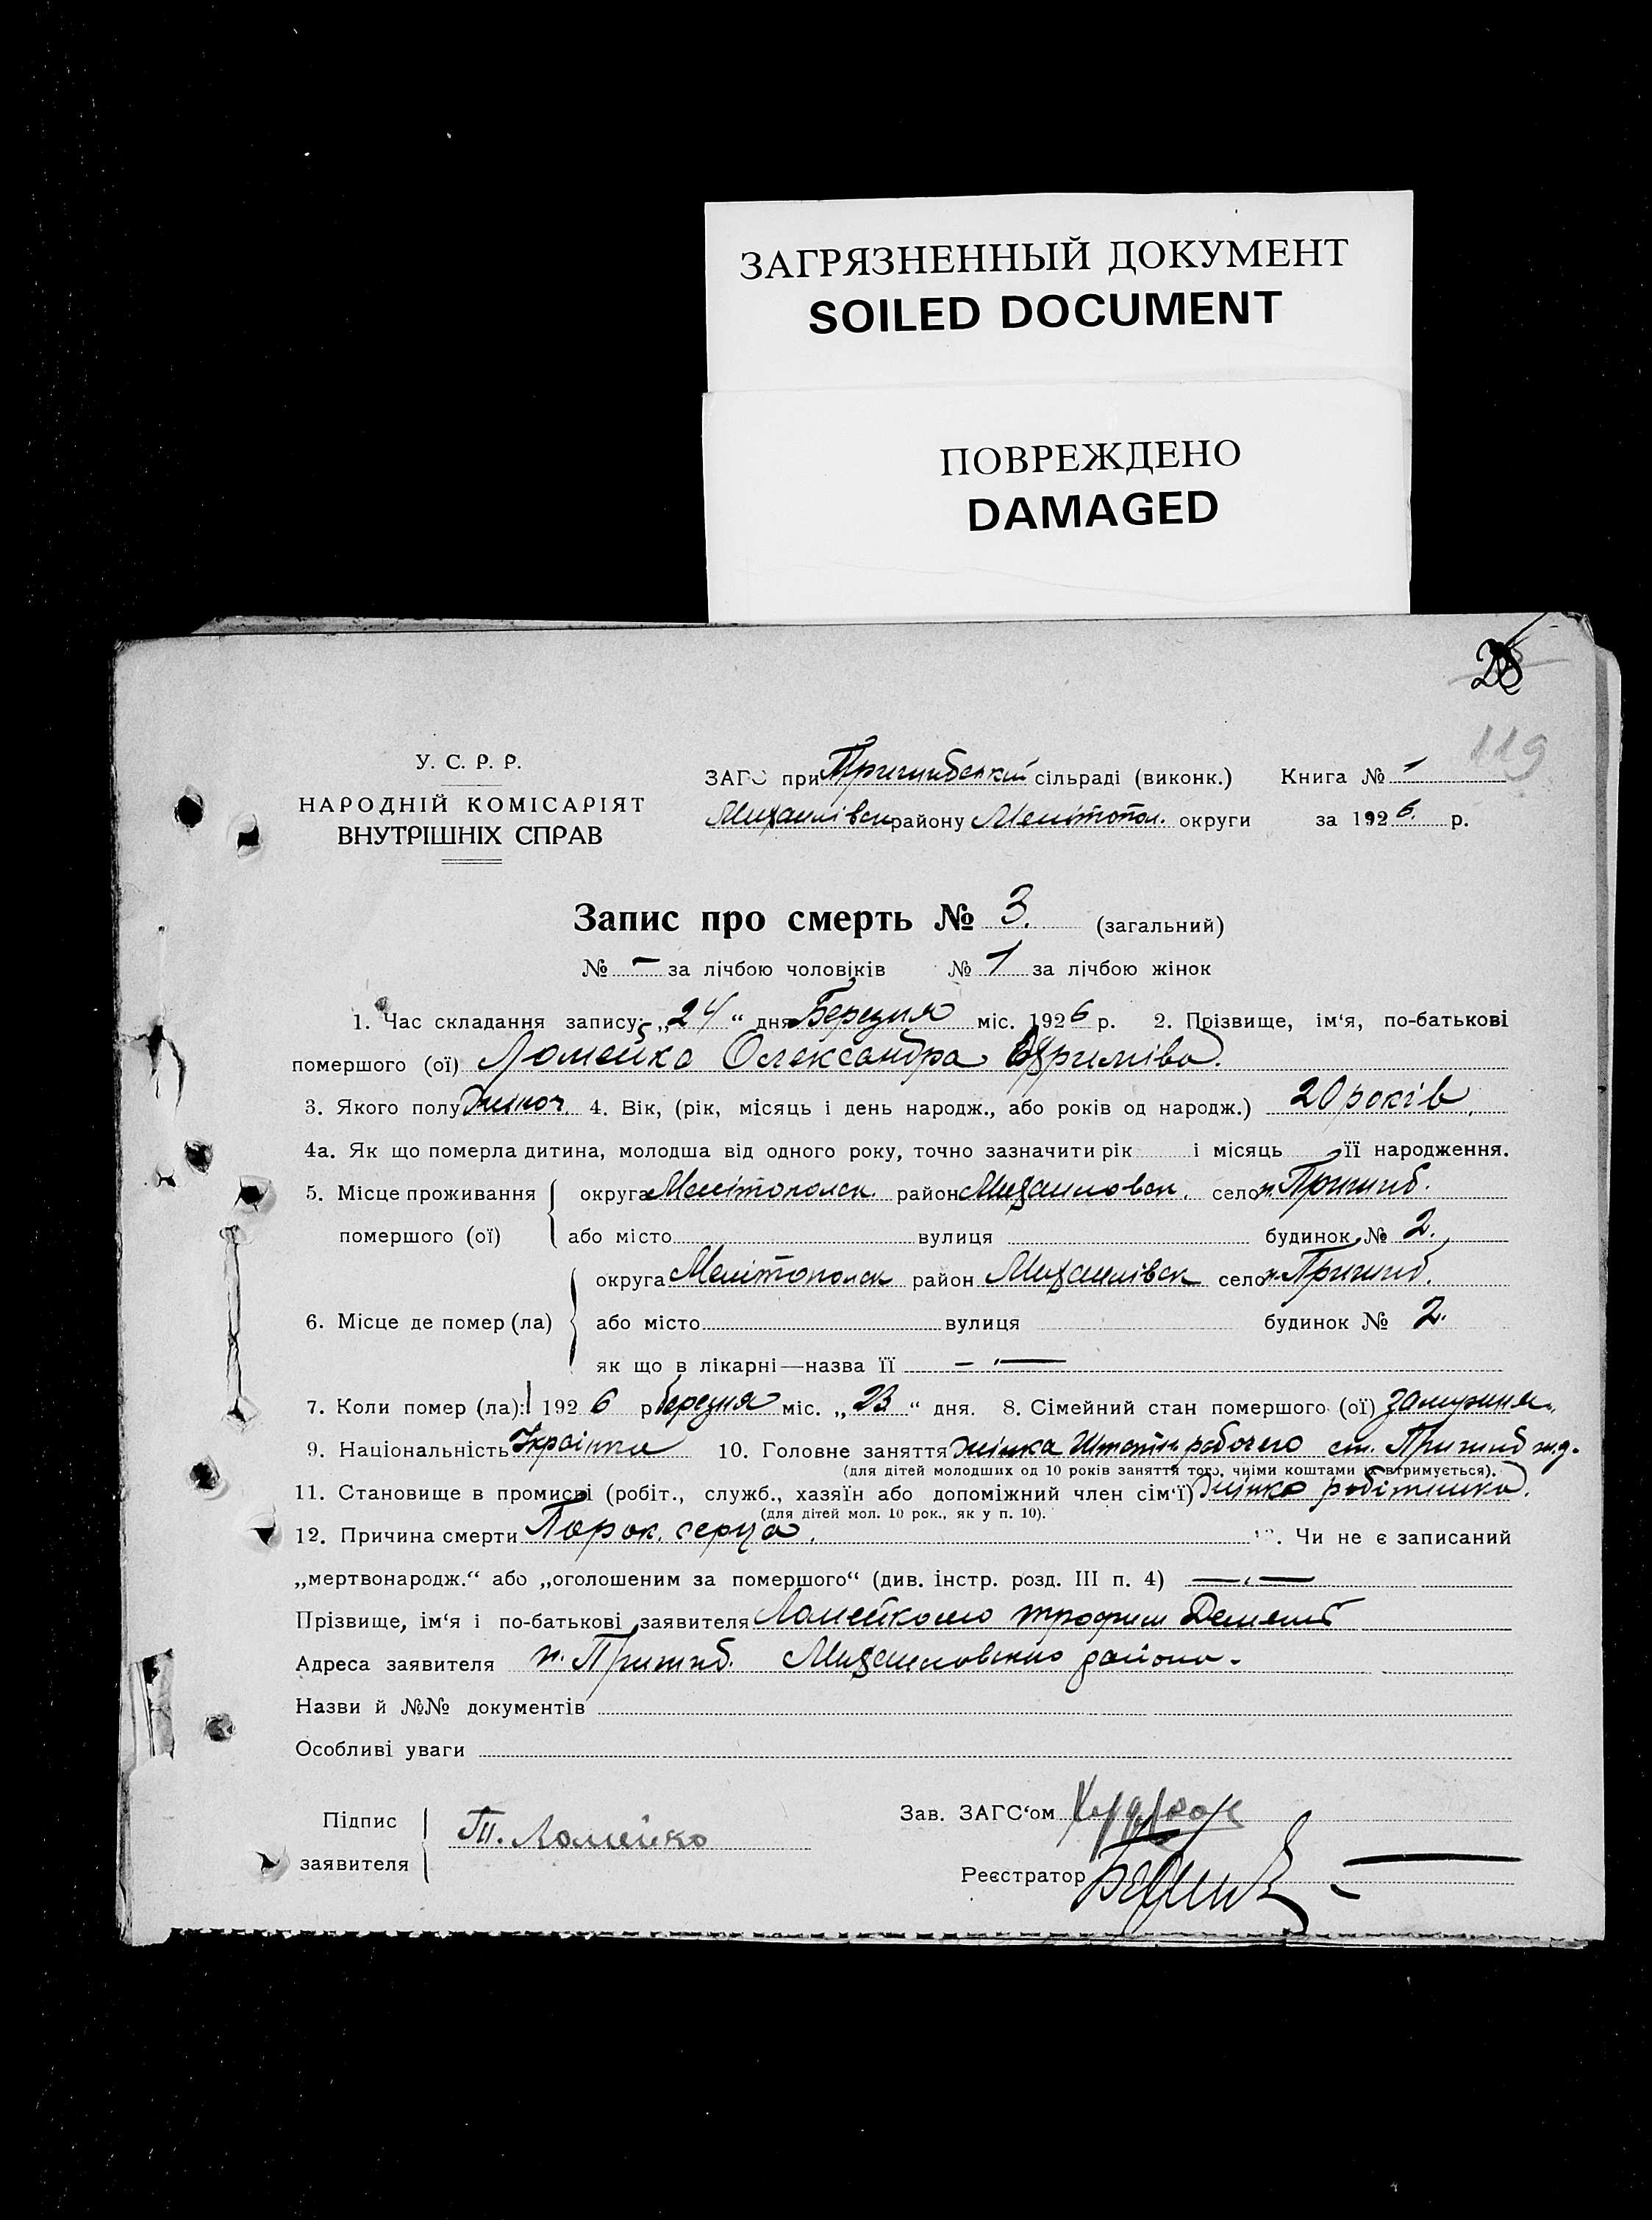 ЗАГРЯЗНЕННЫЙ ДОКУМЕНТ
SOILED DOCUMENT
ПОВРЕЖДЕНО
DAMAGED
28
119
У. С. Р. Р.
НАРОДНІЙ КОМІСАРІЯТ
ВНУТРІШНІХ СПРАВ
ЗАГС при Пришибський сільраді (виконк.) Книга № 1
Михайлівск району Мелітопол. округи за 1926. р.
Запис про смерть № 3. (загальний)
№ — за лічбою чоловіків № 1 за лічбою жінок
1. Час складання запису: „24“ дня Березня міс. 1926 р. 2. Прізвище, ім‘я, по-батькові
помершого (ої) Ломейко Олександра
3. Якого полу жіноч. 4. Вік, (рік, місяць і день народж., або років од народж.) 20 років
4а. Як що померла дитина, молодша від одного року, точно зазначити рік і місяць її народження.
5. Місце проживання округа Мелітопольск. район Михайловск. село п. Пришиб.
помершого (ої) або місто вулиця будинок № 2.
округа Мелітопольск район Михайлівск село п. Пришиб.
6. Місце де помер (ла) або місто вулиця будинок № 2.
як що в лікарні—назва її — —
7. Коли помер (ла): 1926 р березня міс. „23“ дня. 8. Сімейний стан помершого (ої) замужня
9. Національність Українка 10. Головне заняття жінка робочего ст. Пришиб ж.д.
(для дітей молодших од 10 років заняття того, чиїми коштами їх втримується).
11. Становище в промислі (робіт., служб., хазяїн або допоміжний член сім‘ї) жінка робітника.
(для дітей мол. 10 рок., як у п. 10).
12. Причина смерти Порок. серца. . Чи не є записаний
„мертвонародж.“ або „оголошеним за помершого“ (див. інстр. розд. III п. 4) — —
Прізвище, ім‘я і по-батькові заявителя Трофим
Адреса заявителя п. Пришиб. Михайловского района.
Назви й №№ документів
Особливі уваги
Підпис
заявителя
Ломейко
Зав. ЗАГС‘ом
Реєстратор